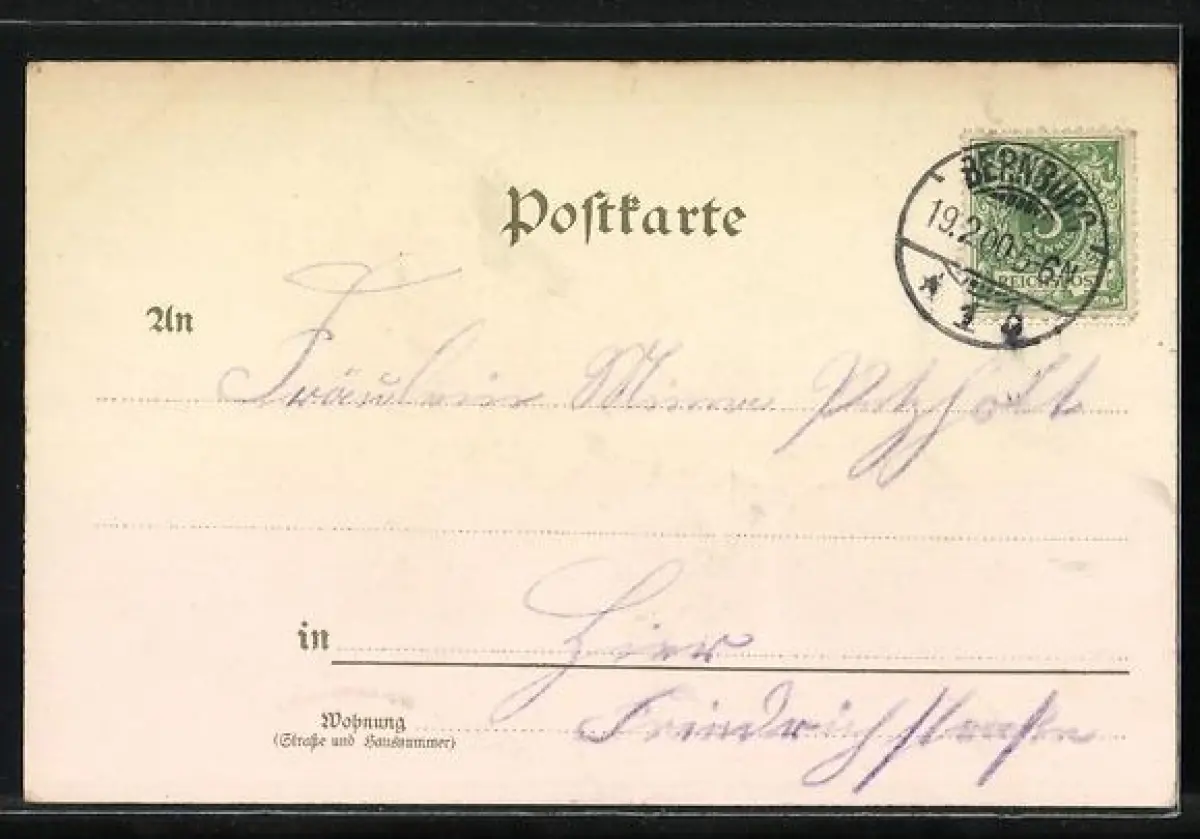 Postkarte
BERNBURG
19.2.00.5-6N.
* 1 b
5
REICHSPOST
An
Fräulein Minna Petzholt
in Hier
Wohnung
(Straße und Hausnummer)
Friedrichstraße